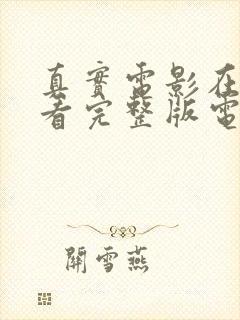 真實電影在
看完整版電
開雪燕